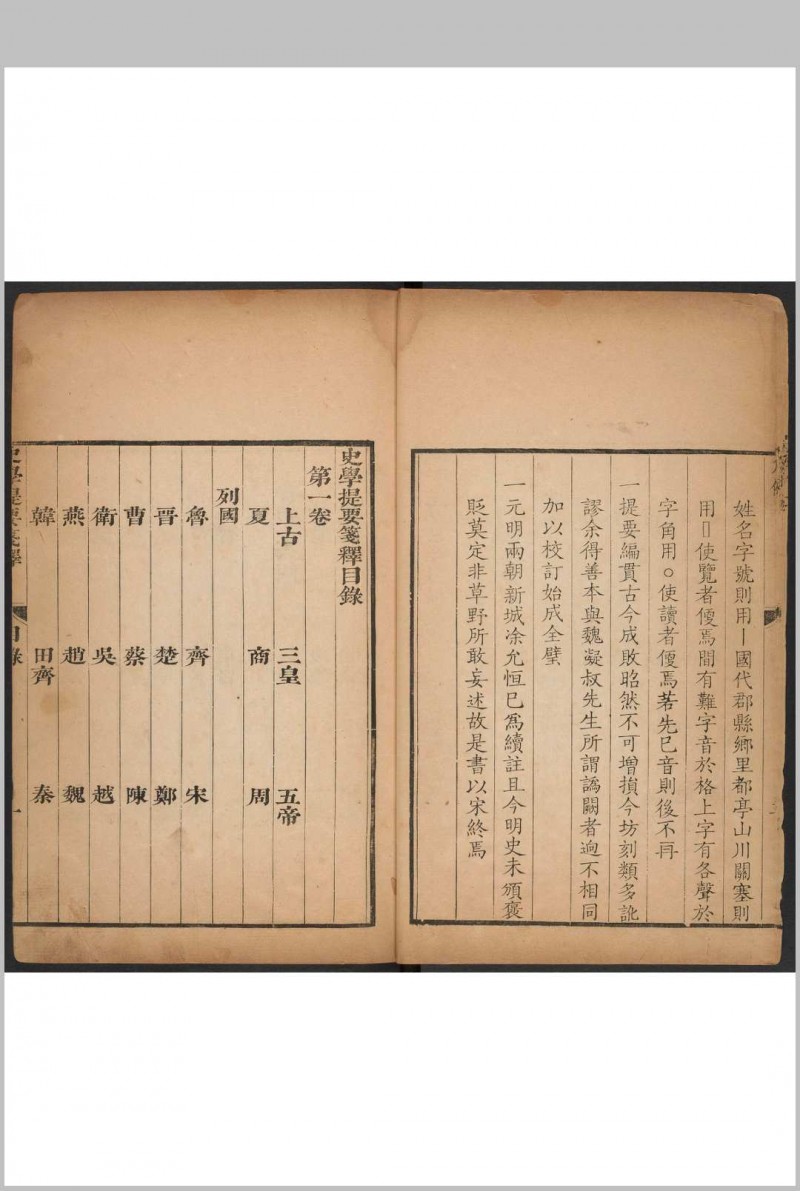 姓名字號則用｜國代郡縣鄉里都亭山川關塞則
用▯使覽者便焉間有難字音於格上字有各聲於
字角用○使讀者便焉若先已音則後不再
一提要編貫古今成敗昭然不可增損今坊刻類多訛
謬余得善本與魏凝叔先生所謂譌闕者逈不相同
加以校訂始成全璧
一元明兩朝新城凃允恒已爲續註且今明史未頒褒
貶莫定非草野所敢妄述故是書以宋終焉
史學提要箋釋目錄
第一卷
上古 三皇 五帝
夏 商 周
列國
魯 齊 宋
晋 楚 鄭
曹 蔡 陳
衛 吳 越
燕 趙 魏
韓 田齊 秦
史學提要箋釋 目錄 一